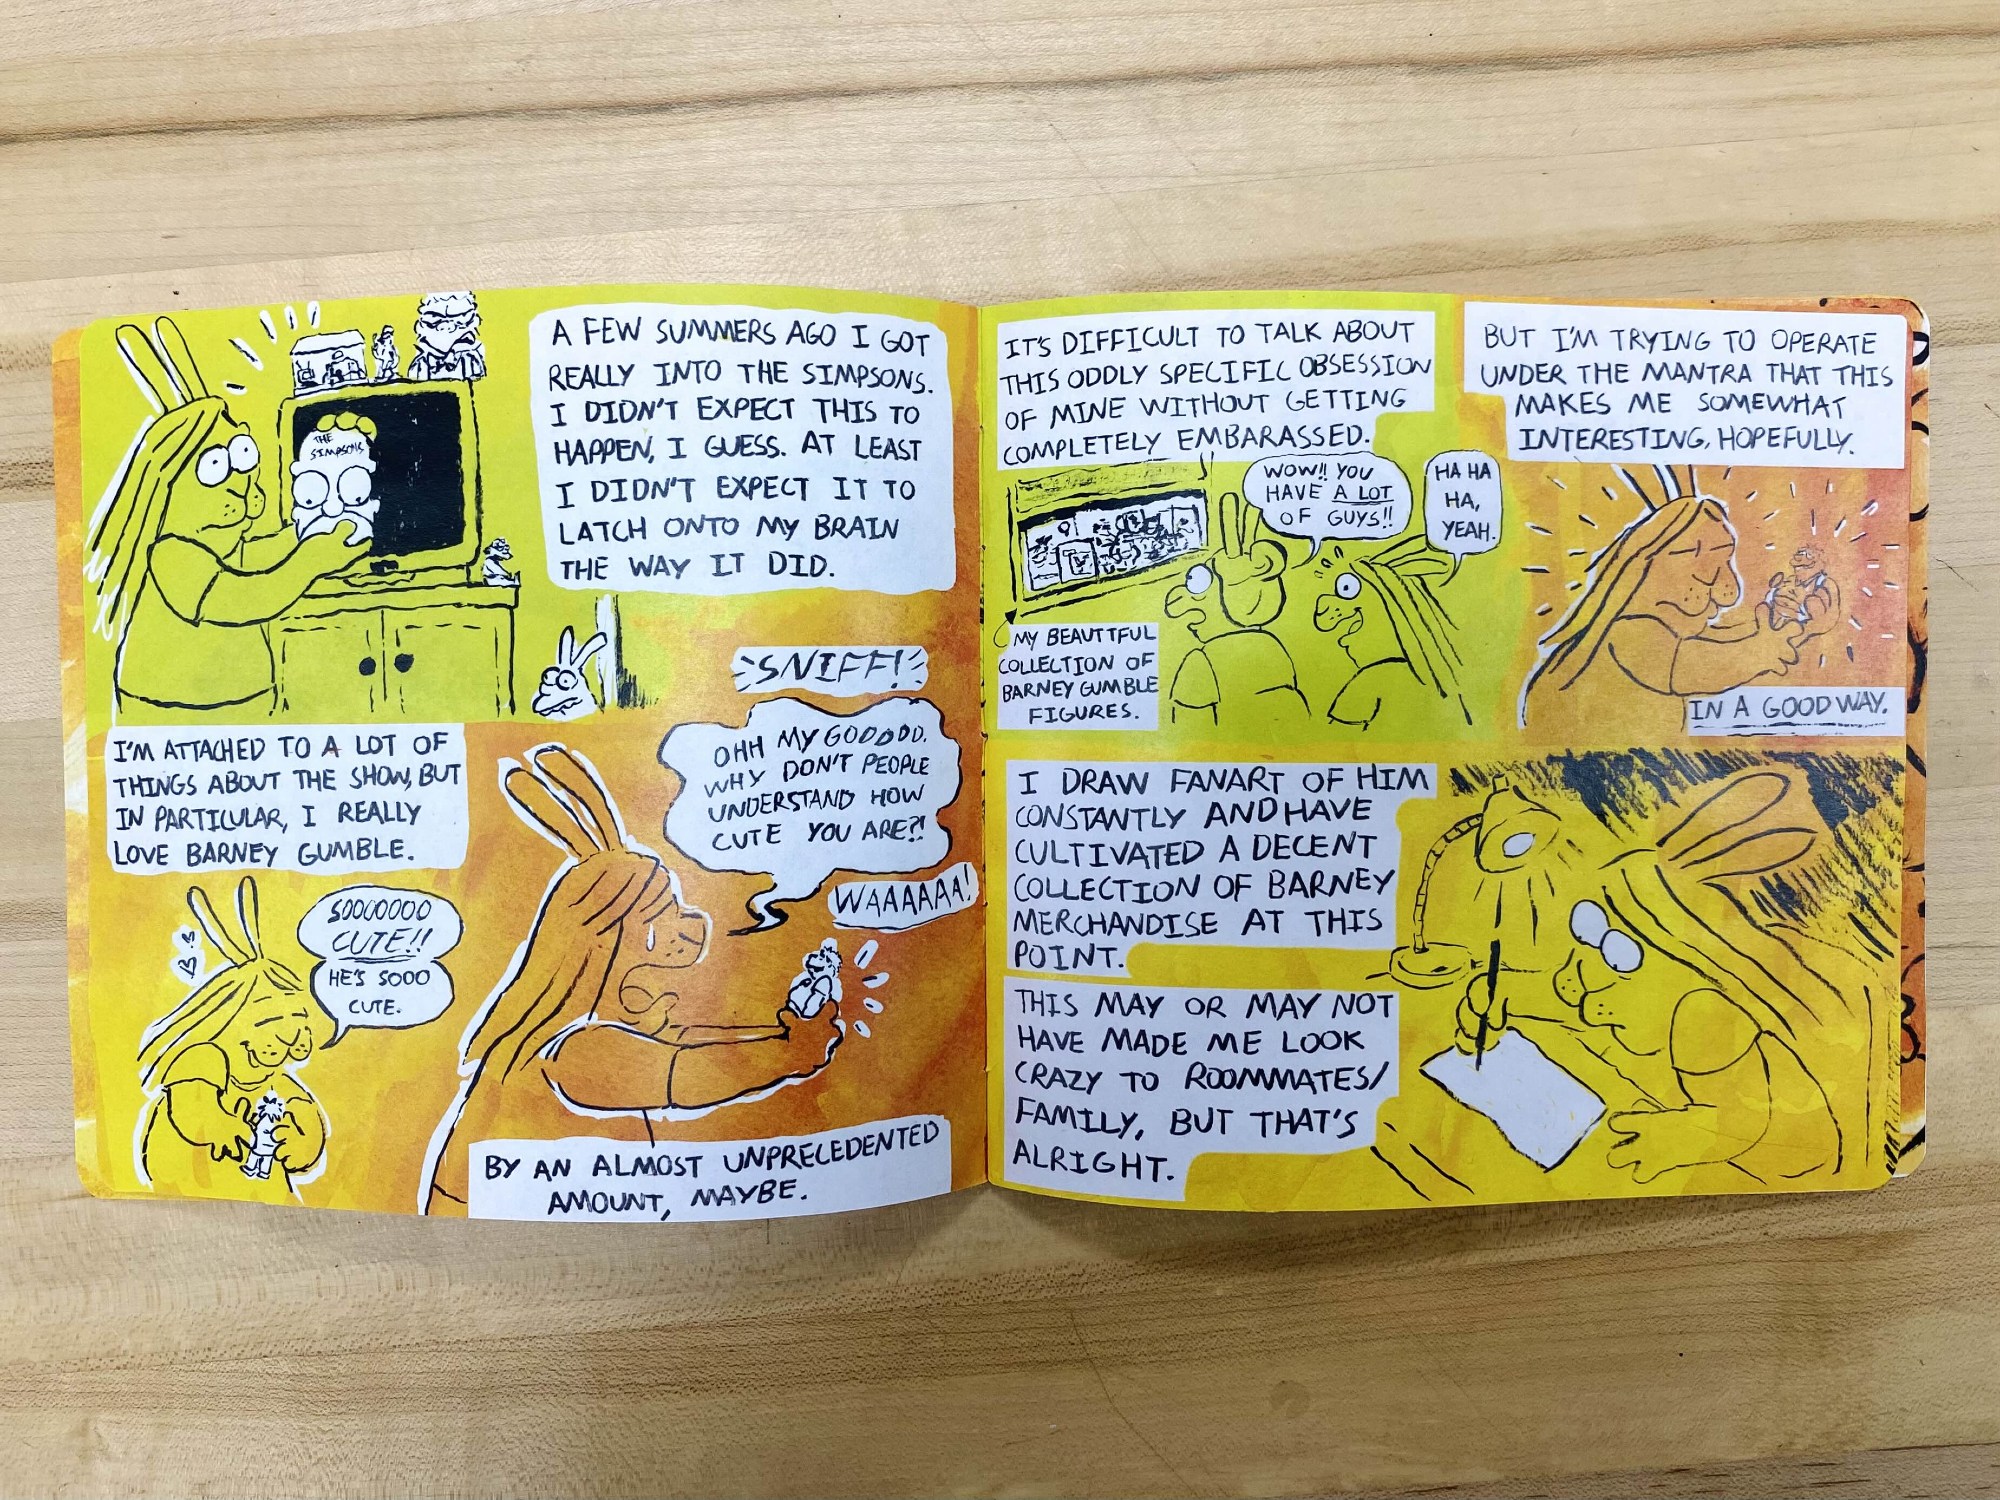 A FEW SUMMERS AGO I GOT
REALLY INTO THE SIMPSONS.
I DIDN'T EXPECT THIS TO
HAPPEN, I GUESS. AT LEAST
I DIDN'T EXPECT IT TO
LATCH ONTO MY BRAIN
THE WAY IT DID.
THE
SIMPSONS
I'M ATTACHED TO A LOT OF
THINGS ABOUT THE SHOW, BUT
IN PARTICULAR, I REALLY
LOVE BARNEY GUMBLE.
SOOOOOOO
CUTE!!
HE'S SOOO
CUTE.
SNIFF!
OHH MY GOOOOD.
WHY DON'T PEOPLE
UNDERSTAND HOW
CUTE YOU ARE?!
WAAAAAA!
BY AN ALMOST UNPRECEDENTED
AMOUNT, MAYBE.
IT'S DIFFICULT TO TALK ABOUT
THIS ODDLY SPECIFIC OBSESSION
OF MINE WITHOUT GETTING
COMPLETELY EMBARASSED.
WOW!! YOU
HAVE A LOT
OF GUYS!!
HA HA
HA,
YEAH.
MY BEAUTIFUL
COLLECTION OF
BARNEY GUMBLE
FIGURES.
BUT I'M TRYING TO OPERATE
UNDER THE MANTRA THAT THIS
MAKES ME SOMEWHAT
INTERESTING, HOPEFULLY.
IN A GOOD WAY.
I DRAW FANART OF HIM
CONSTANTLY AND HAVE
CULTIVATED A DECENT
COLLECTION OF BARNEY
MERCHANDISE AT THIS
POINT.
THIS MAY OR MAY NOT
HAVE MADE ME LOOK
CRAZY TO ROOMMATES/
FAMILY, BUT THAT'S
ALRIGHT.